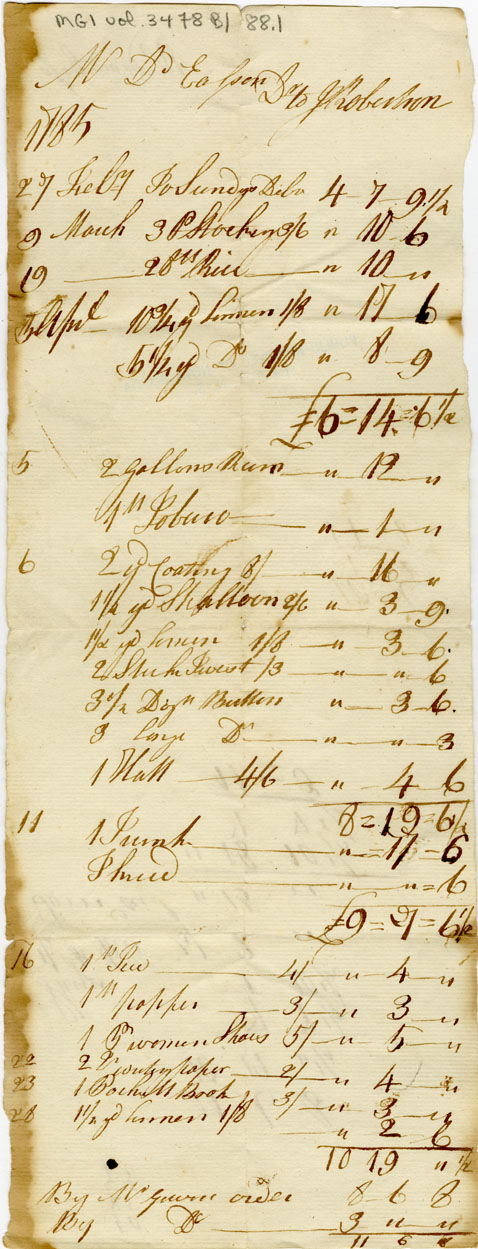 MG1 vol. 3478 B/ 88.1
Mr Dd Easson Dr to J Robertson
1785
27 Feby To Sundys Debr 4 - 7 - 9 1/2
9 March 3 Pr Stockings 3/6 " 10 - 6
19 28 lb Rice " 10 - "
5 Aprl 10 3/4 yd Linnen 1/8 " 17 - 6
5 1/4 yd Do 1/8 " 8 - 9
£6 = 14 = 6 1/2
5 2 Gallons Rum " 12 - "
4 lb Tobaco " 1 - "
6 2 yd Coating 8/ " 16 - "
1 1/2 yd Shalloon 2/6 " 3 - 9
1 1/2 yd Linnen 1/8 " 3 - 6
2 Stick Twist /3 " " 6
3 1/2 Dozn Buttons " 3 - 6
3 large Do " " 3
1 Hatt 4/6 " 4 - 6
8 = 19 = 6 1/2
11 1 Trunk " = 17 = 6
Thread " " = 6
£9 = 7 = 6 1/2
16 1 lb Tea 4/ " 4 - "
1 lb popper 3/ " 3 - "
1 Pr women Shoes 5/ " 5 - "
22 2 writing paper 2/ " 4 - "
23 1 Pockett Book 3/ " 3 - "
28 1 1/2 yd Linnen 1/8 " 2 - 6
10 19 " 1/2
By Mr order 8 - 6 8
By Do 3 " "
11 6 8